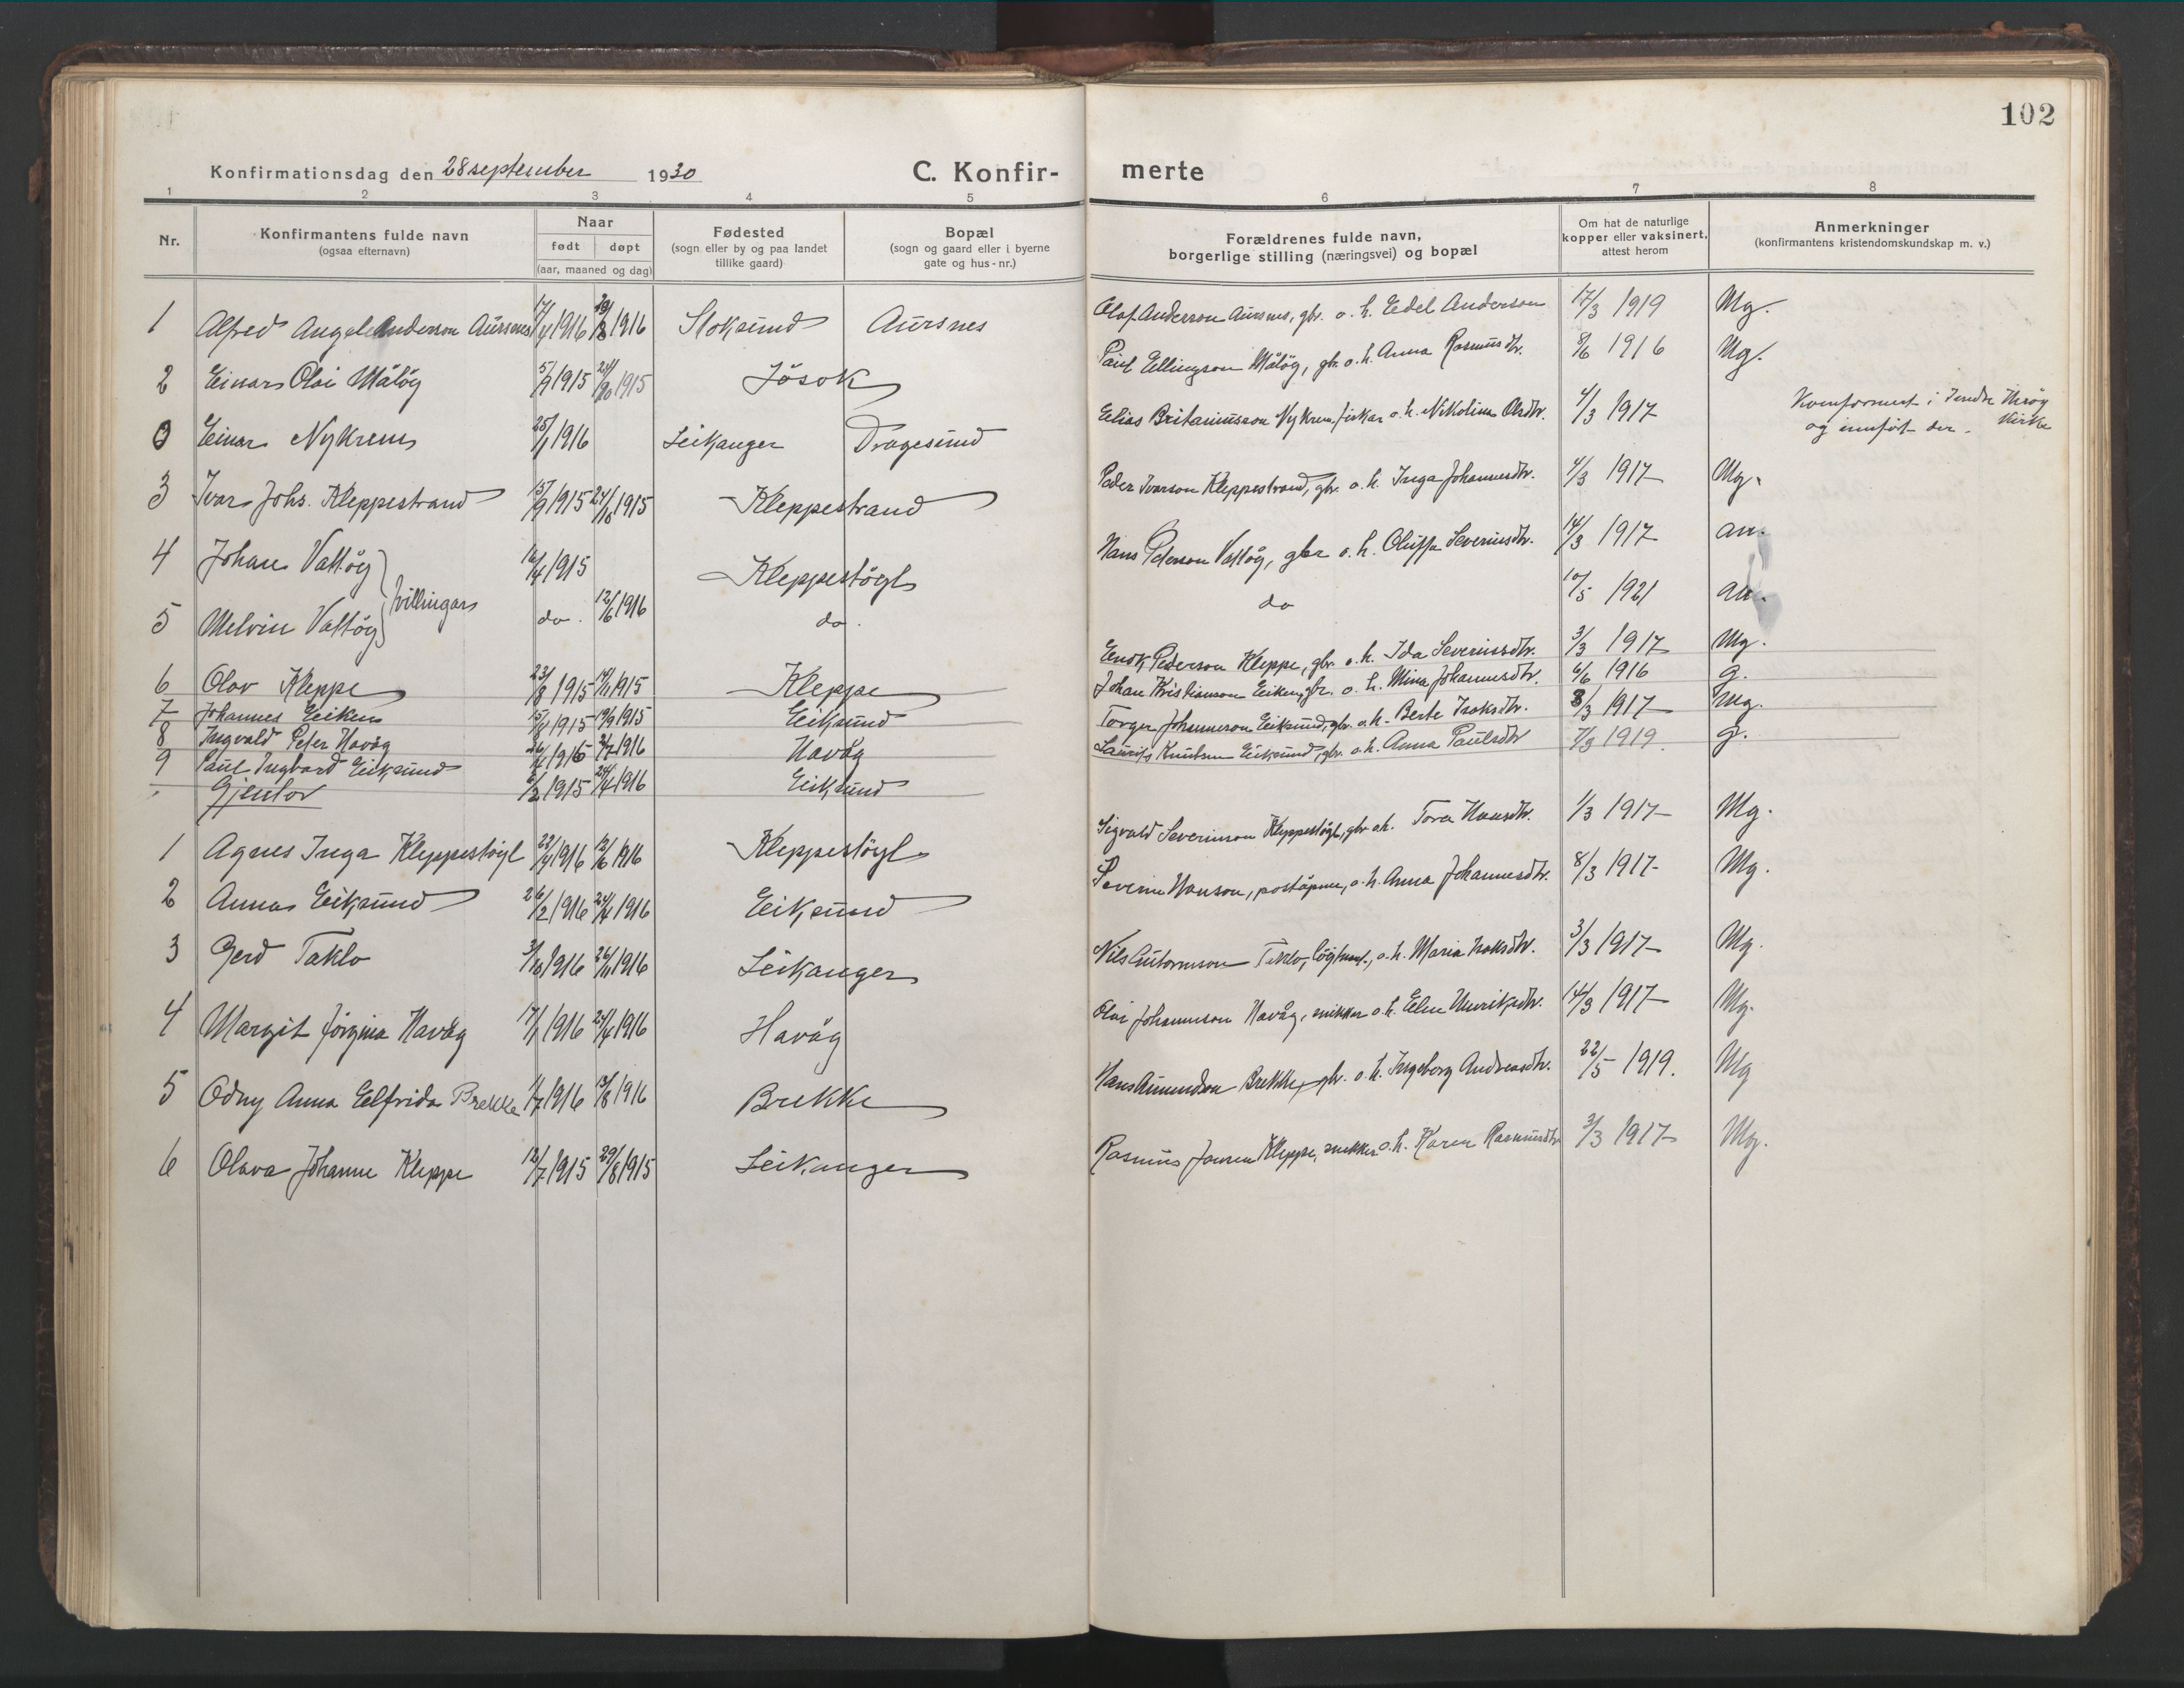 102
Konfirmationsdag den 28 september 1930
C. Konfir- merte
1 2 3 4 5 6 7 8
Nr.
Konfirmantens fulde navn
(ogsaa efternavn)
Naar
født døpt
(aar, maaned og dag)
Fødested
(sogn eller by og paa landet
tillike gaard)
Bopæl
(sogn og gaard eller i byerne
gate og hus-nr.)
Forældrenes fulde navn,
borgerlige stilling (næringsvei) og bopæl
Om hat de naturlige
kopper eller vaksinert,
attest herom
Anmerkninger
(konfirmantens kristendomskundskap m. v.)
1 Alfred Angel Anderson Aursnes 17/4 1916 1916 Stoksund Aursnes Olaf Anderson Aursnes, gbr. o. h. Edel Anderson 17/3 1919 Mg.
2 Einar Olai Måløg 5/9 1915 24/10 1915 Jøsok Paul Ellingson Måløg, gbr. o. h. Anna Rasmusdtr. 8/6 1916 Mg.
0 Einar Nykrem 25/1 1916 Leikanger Dragesund Elias Britaniusson Nykrem, fiskar o. h. Nikolina Olsdtr. 4/3 1917 Komfirmert i Indre Herøy Kirke
og innført der.
3 Ivar Johs. Kleppestrand 15/9 1915 24/10 1915 Kleppestrand Peder Ivarson Kleppestrand, gbr. o. h. Inga Johannesdtr. 4/3 1917 Mg.
4 Johan Vattøg 16/4 1915 Kleppestøgl Hans Peterson Vattøg, gbr o. h. Oluffa Severinsdtr. 14/3 1917 an.
tvillingar
5 Melvin Vattøg do. 12/6 1916 do. do 10/5 1921 an.
6 Olav Kleppe 23/8 1915 14/11 1915 Kleppe Enok Pederson Kleppe, gbr. o. h. Ida Severinsdtr. 3/3 1917 Mg.
7 Johannes Eiken 15/8 1915 19/9 1915 Eiksund Johan Kristianson Eiken, gbr. o. h. Mina Johannesdtr. 6/6 1916 g.
8 Ingvald Peter Havåg 1916 1916 Havåg Torger Johanneson Eiksund, gbr. o. h. Berte Isaksdtr. 8/3 1917 Mg.
9 Paul Ingvard Eiksund 1915 24/4 1916 Eiksund Laurits Knutson Eiksund, gbr. o. h. Anna Paulsdtr 7/3 1919. g.
Gjentor
1 Agnes Inga Kleppestøgl 22/4 1916 12/6 1916 Kleppestøgl Sigvald Severinson Kleppestøgl, gbr o. h. Tora Hansdtr. 1/3 1917 Mg.
2 Anna Eiksund 26/2 1916 24/4 1916 Eiksund Severin Hanson, poståpner, o. h. Anna Johannesdtr. 8/3 1917 Mg.
3 Gerd Taklo 3/10 1916 26/11 1916 Leikanger Nils Guttormson Taklo, o. h. Maria Isaksdtr. 3/3 1917 Mg.
4 Margit Jørgina Havåg 17/1 1916 24/4 1916 Havåg Olai Johannson Havåg, snikkar o. h. Elen Henriksdtr. 14/3 1917 Mg.
5 Odny Anna Elfrida Brekke 1/7 1916 13/8 1916 Brekke Hans Amundson Brekke, gbr. o. h. Ingeborg Andreasdtr. 22/5 1919. Mg
6 Olava Johanne Kleppe 12/7 1915 29/8 1915 Leikanger Rasmus Jonsen Kleppe, snekker o. h. Karen Rasmusdtr 3/3 1917 Mg.